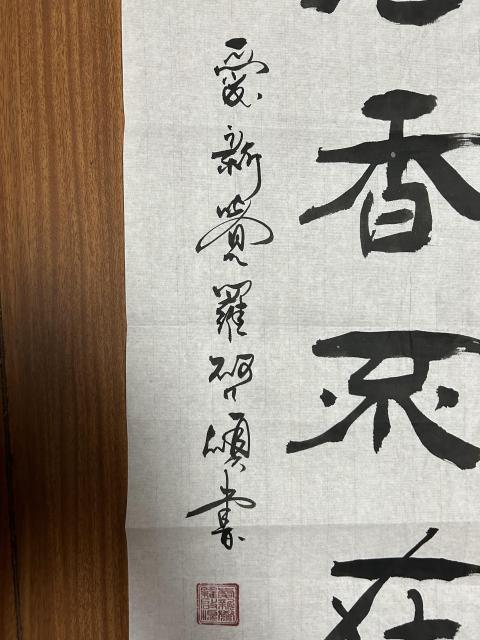 香不在
愛新覺羅書